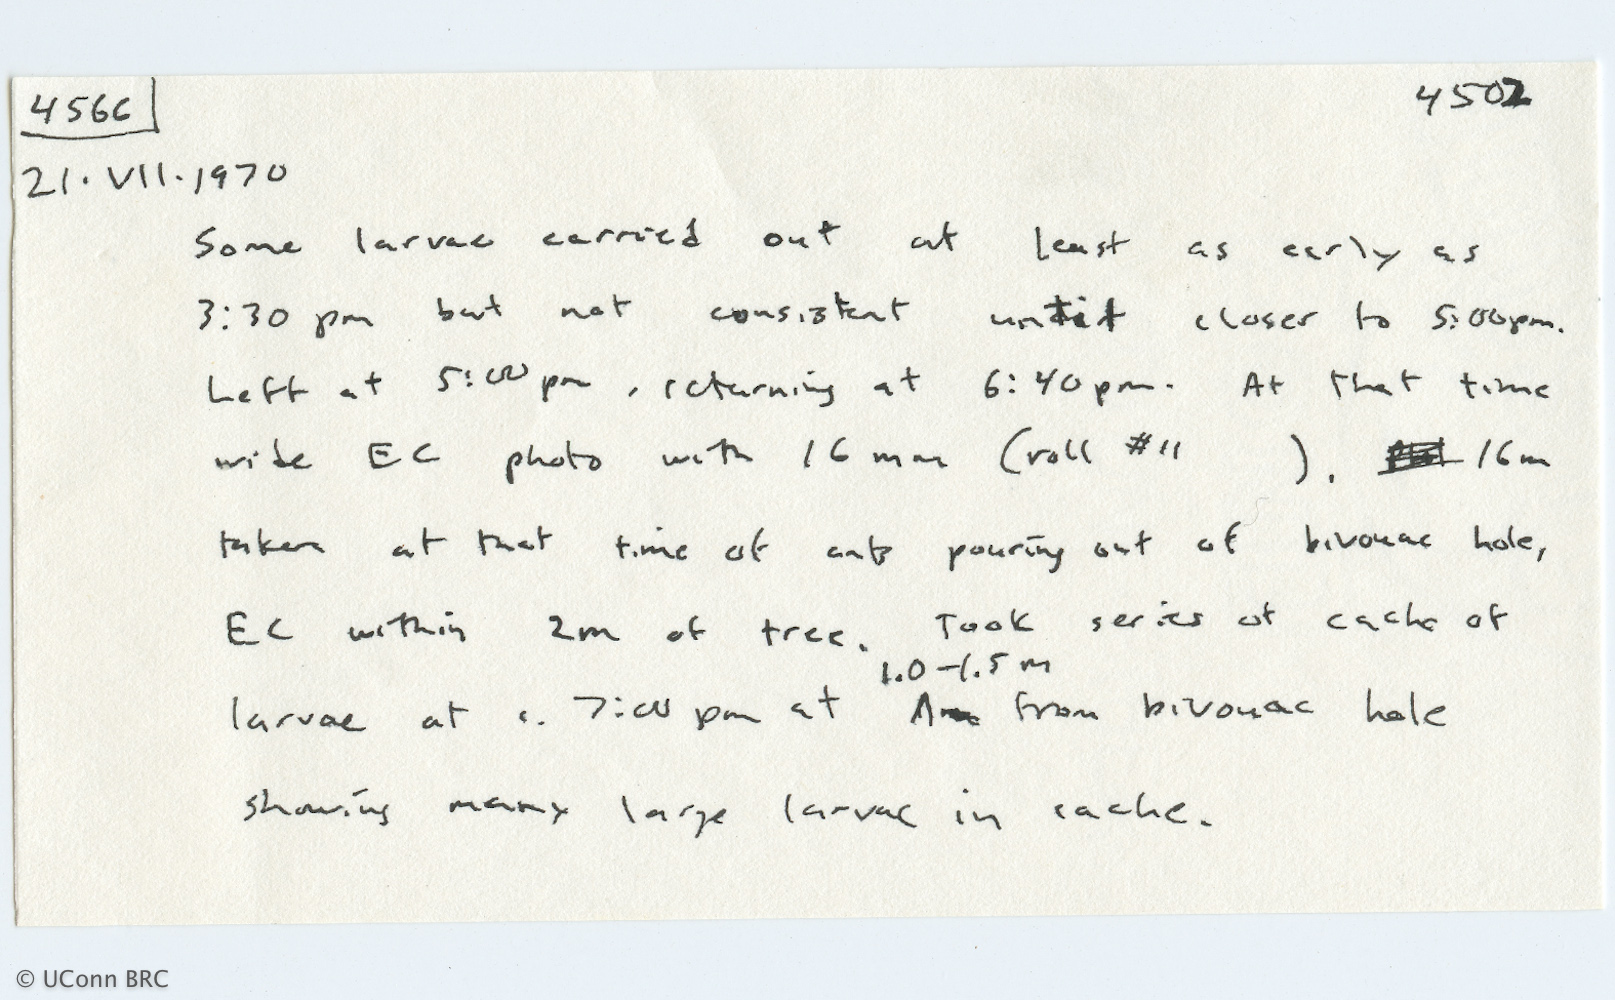 456C 4502
21.VII.1970
Some larvae carried out at least as early as
3:30 pm but not consistent until closer to 5:00pm.
Left at 5:00 pm, returning at 6:40pm. At that time
wide EC photo with 16mm (roll #11 ). 16m
taken at that time of ants pouring out of bivouac hole,
EC within 2m of tree. Took series of cache of
1.0-1.5m
larvae at c. 7:00 pm at from bivouac hole
showing many large larvae in cache.
© UConn BRC